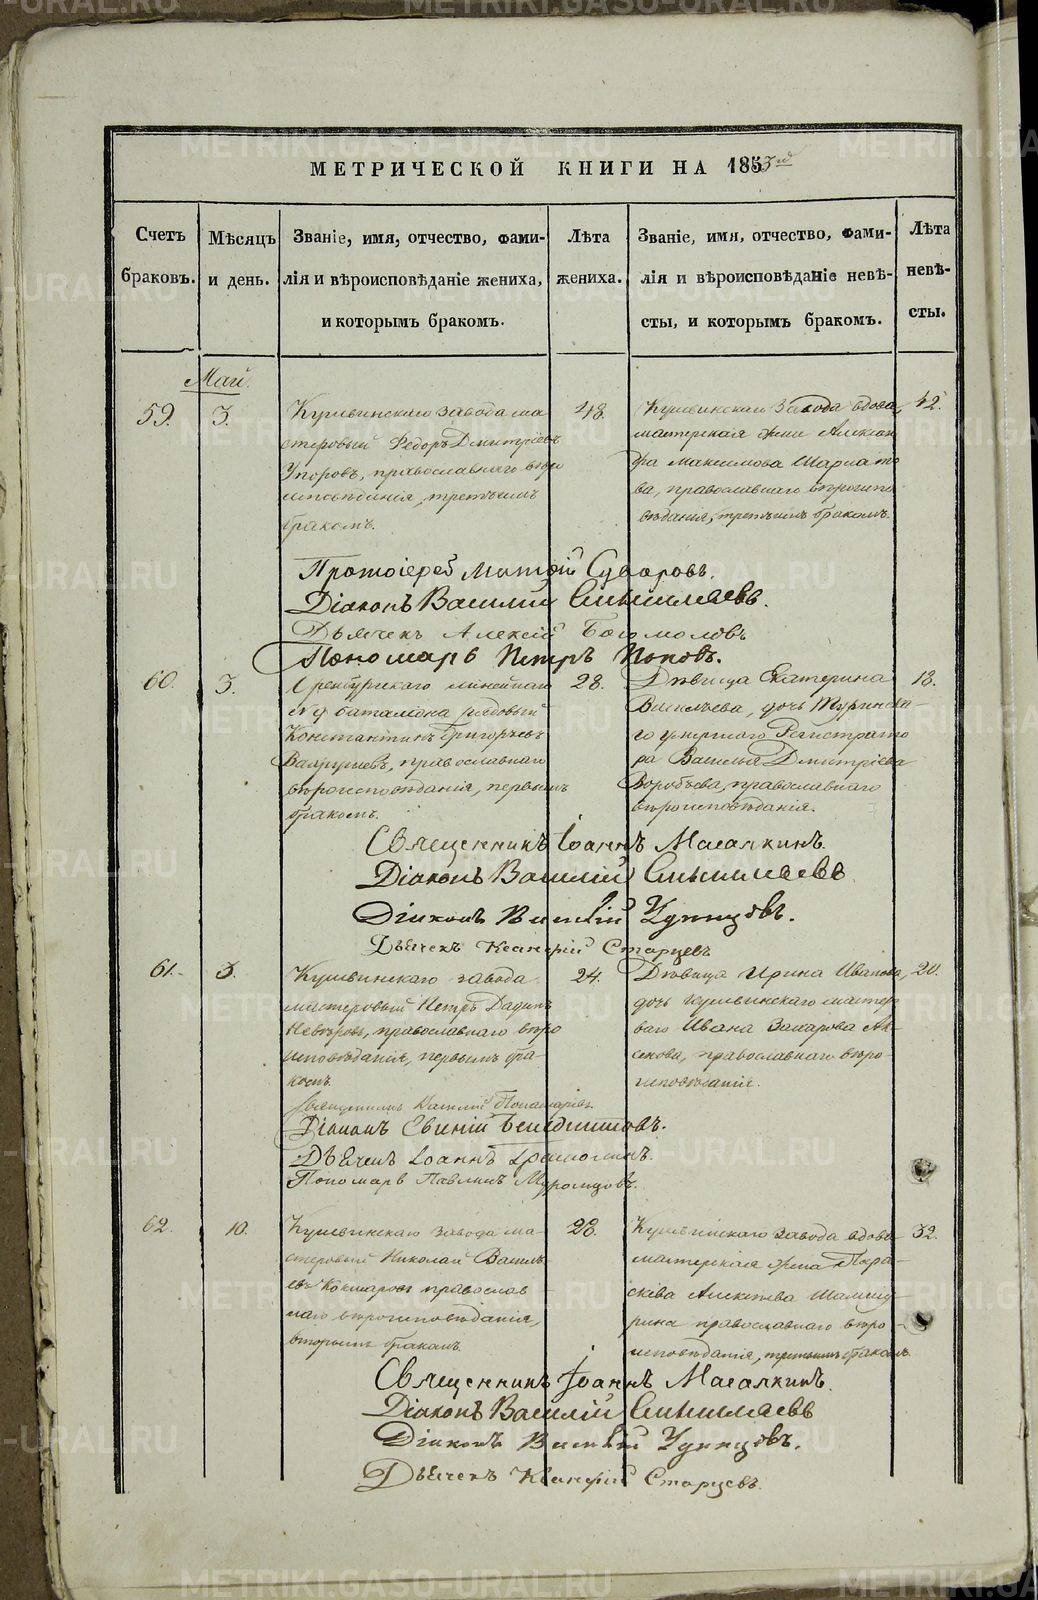 МЕТРИЧЕСКОЙ КНИГИ НА 1853й
Счетъ браковъ.
Мѣсяцъ и день.
Званіе, имя, отчество, фами-
лія и вѣроисповѣданіе жениха,
и которымъ бракомъ.
Лѣта жениха.
Званіе, имя, отчество, фами-
лія и вѣроисповѣданіе невѣ-
сты, и которымъ бракомъ.
Лѣта невѣ-
сты.
Май.
59. 3.
Кушвинскаго завода ма
стеровый Ѳедоръ Дмитріевъ
Упоровъ, православнаго вѣро
исповѣданія, третьимъ
бракомъ.
48.
Кушвинскаго завода вдова,
мастерская жена Алексан
дра Максимова
православнаго вѣроиспо
вѣданія, третьимъ бракомъ.
42.
Протоіерей Матѳій Суворовъ.
Діаконъ Василій
Дьячекъ Алексій Богомоловъ
Пономарь Петръ Поповъ.
60. 3.
Оренбургскаго линейнаго
№ 9 баталіона рядовый
Константинъ Григорьевъ
православнаго
вѣроисповѣданія, первымъ
бракомъ.
28.
Дѣвица Екатерина
Васильева, дочь Туринска-
го Регистрато
ра Василья Дмитріева
Воробьева, православнаго
вѣроисповѣданія.
18.
Священникъ Іоаннъ Масалкинъ.
Діаконъ Василій
Діаконъ Василій Удинцовъ.
Дьячекъ Старцевъ
61. 3.
Кушвинскаго завода
мастеровый Петръ
православнаго вѣро
исповѣданія, первымъ бра-
комъ.
24.
Дѣвица Ирина Иванова,
дочь кушвинскаго мастеро
ваго Ивана Захарова Ак-
сенова, православнаго вѣро-
исповѣданія.
20.
Священникъ Василій Пономаревъ.
Діаконъ Евгеній
Дьячекъ Іоаннъ
Пономарь Павлинъ Муромцовъ.
62. 10.
Кушвинскаго завода ма-
стеровый Николай Василь
евъ православ-
наго вѣроисповѣданія,
вторымъ бракомъ.
28.
Кушвинскаго завода вдова
мастерская жена Пара-
скева Алексѣева Шамшу-
рина православнаго вѣро-
исповѣданія, третьимъ бракомъ.
32.
Священникъ Іоаннъ Масалкинъ.
Діаконъ Василій
Діаконъ Василій Удинцовъ.
Дьячекъ Старцевъ.
METRIKI.GASO-URAL.RU